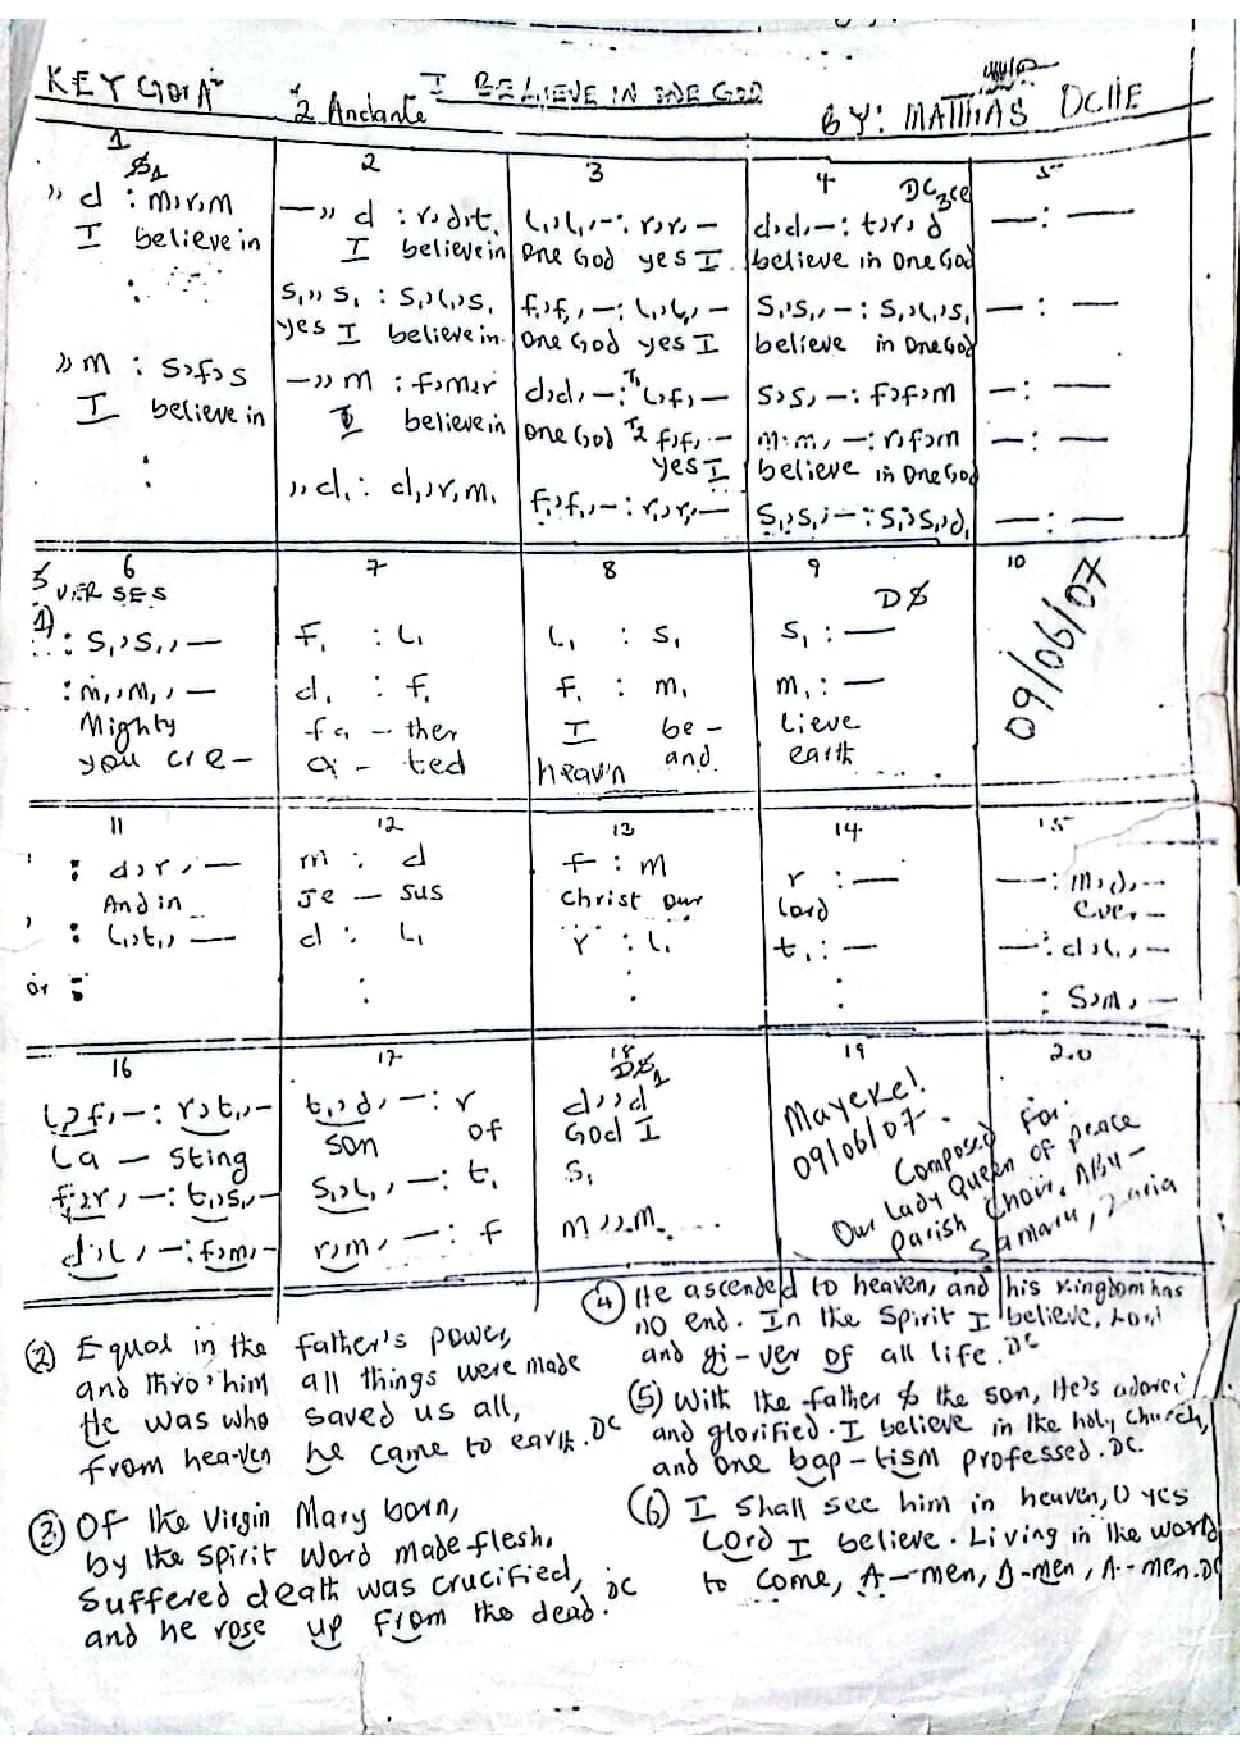 KEY G or Ab
2 Andante
I BELIEVE IN ONE GOD
BY: MATTHIAS
1 2 3 4 DC 3ce 5
,, d : m,r,m | —,, d : r,d,t, | l,,l,,—: r,r,— | d,d,—: t,r,d | —:—
I believe in | I believe in | One God yes I | believe in One God
: | s,,, s, : s,,l,,s, | f,,f,,—: l,,l,,— | s,,s,,—: s,,l,,s, | —:—
yes I believe in | One God yes I | believe in One God
,, m : s,f,s | —,, m : f,m,r | d,d,—: T1 l,,f,— | s,s,—: f,f,m | —:—
I believe in | I believe in | One God T2 f,f,— | m,m,—: r,f,m | —:—
yes I | believe in One God
: | ,, d, : d,,r,m, | f,,f,,—: r,,r,,— | s,,s,,—: s,,s,,d, | —:—
6 7 8 9 10
VERSES D$
1) : s,,s,,— | f, : l, | l, : s, | s, :—
: m,,m,,— | d, : f, | f, : m, | m, :—
Mighty | fa - ther | I be- | lieve
you cre- | a - ted | heav'n and | earth
09/06/07
11 12 13 14 15
: d,r,— | m : d | f : m | r :— | —: m,d,—
And in | Je - sus | Christ our | Lord | ever-
: l,,t,,— | d : l, | r : l, | t, :— | —: d,l,,—
or : | : | : | : | : s,m,—
16 17 18 19 20
D$1
l,f,—: r,t,,— | t,,d,—: r | d,,d
La - sting | son of | God I
f,r,—: t,,s,,— | s,,l,,—: t, | s,
d,l,—: f,m,— | r,m,—: f | m,,m
Mayeke!
09/06/07
Composed for
Our Lady Queen of peace
parish Choir, ABU-
Samaru, Zaria
(2) Equal in the father's power,
and thro' him all things were made
He was who saved us all,
from hea-ven he came to earth. DC
(3) Of the Virgin Mary born,
by the spirit Word made flesh,
Suffered death was crucified,
and he rose up from the dead. DC
(4) He ascended to heaven, and his kingdom has
no end. In the Spirit I believe, Lord
and gi-ver of all life. DC
(5) With the father & the son, He's adored
and glorified. I believe in the holy church,
and one bap-tism professed. DC.
(6) I shall see him in heaven, O yes
Lord I believe. Living in the world
to come, A-men, A-men, A-men. DC